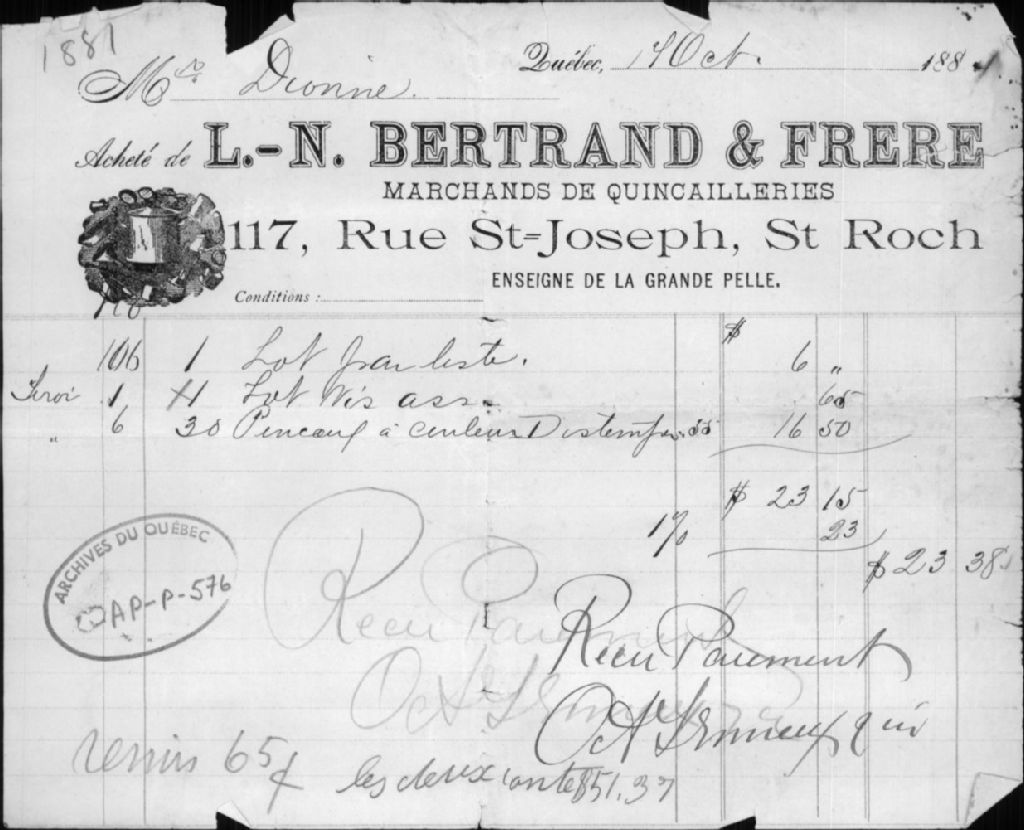 1881
Québec, 17 Oct. 1881
Mr Dionne
Acheté de L.-N. BERTRAND & FRERE
MARCHANDS DE QUINCAILLERIES
117, Rue St-Joseph, St Roch
ENSEIGNE DE LA GRANDE PELLE.
Conditions :
$
106 1 Lot 6 "
1 Lot Vis ass 65
" 6 30 Pinceaux à couleur 55 16 50
$ 23 15
1% 23
$ 23 38
ARCHIVES DU QUÉBEC
AP-P-576
Recu Paiement
Recu Paiement
remis 65¢
les deux conte $51.37